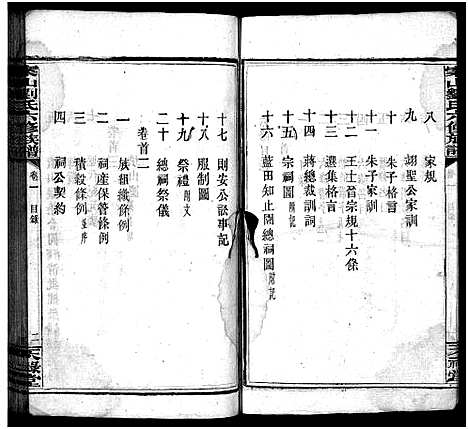 八 家規
九 翊聖公家訓
十 朱子格言
十一 朱子家訓
十二 王士晉宗規十六條
十三 選集格言
十四 蔣總裁訓詞
十五 宗祠圖附記
十六 藍田知止園總祠圖附記
十七 則安公訟事記
十八 服制圖
十九 祭禮附文
二十 總祠祭儀
卷首二
一 族組織條例
二 祠產保管條例
三 積穀條例並序
四 祠公契約
山劉氏六修族譜
卷一 目錄
二
天祿堂